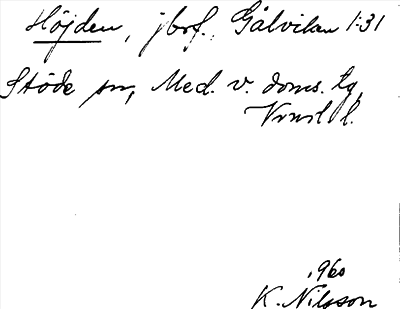 Höjden, jbrf., Gålvikan 1:31
Stöde sn, Med. v. doms. tg,
l.
.960
K. Nilsson